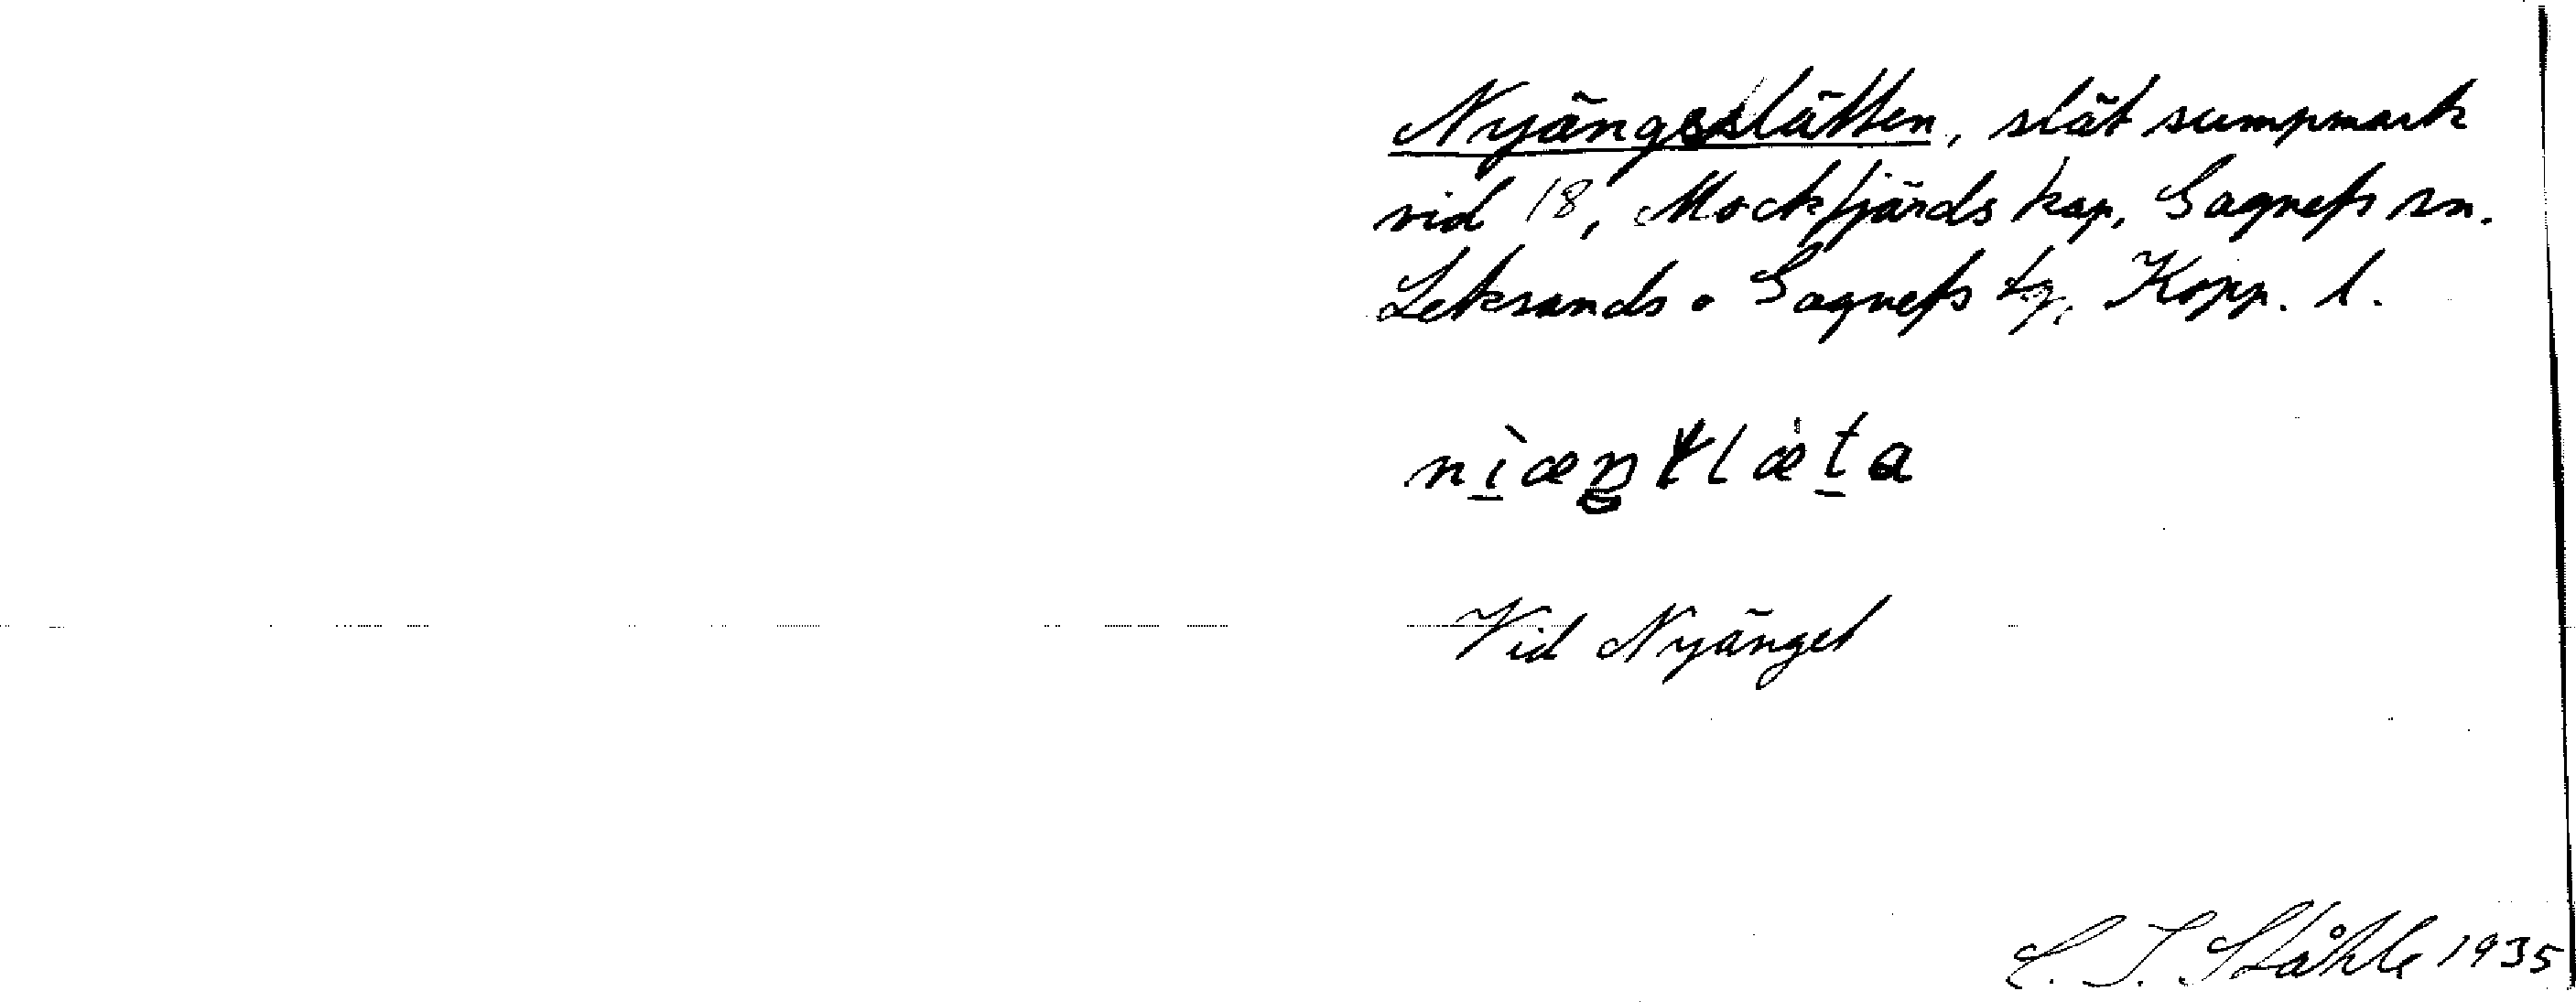 Nyängsslätten, slät sumpmark
vid 18, Mockfjärds kap, Gagnefs sn.
Leksands o Gagnefs tg, Kopp. l.
Vid Nyänget
C. I. Ståhle 1935